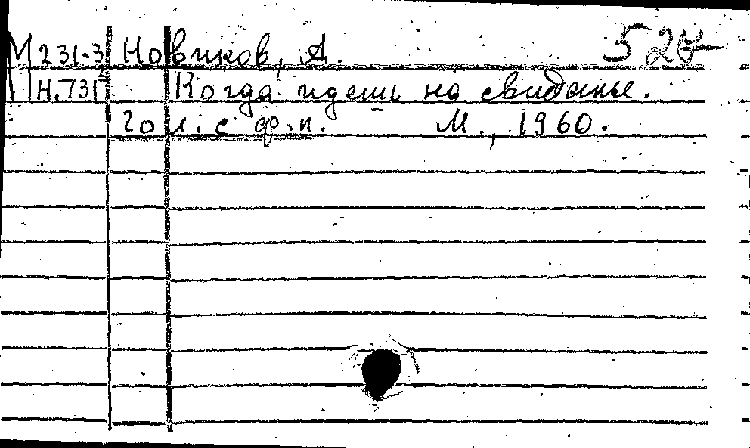 М231-3 Новиков, А.
Н.731 Когда идешь на свиданье.
Гол. с ф.п. М., 1960.